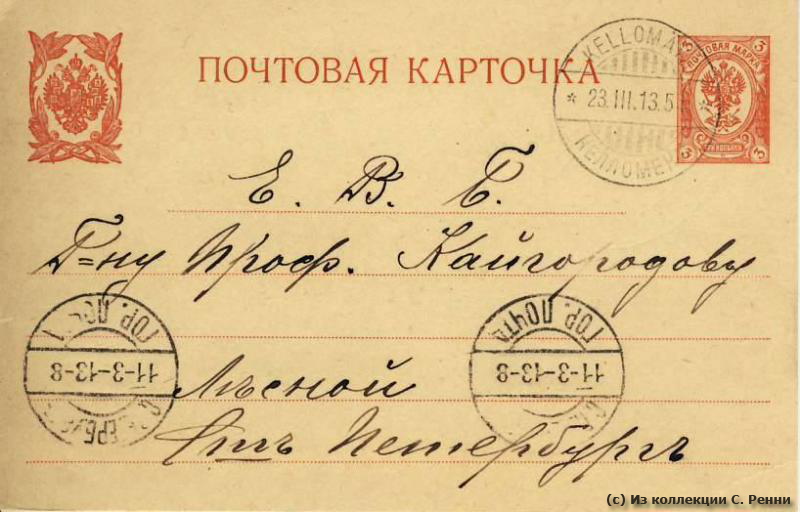 ПОЧТОВАЯ КАРТОЧКА
KELLOMÄ
* 23.III.13.5 *
КЕЛЛОМЕ
ПОЧТОВАЯ МАРКА
3 3
3 3
Е. В. Б.
Г=ну Проф. Кайгородову
ГОР. ПОЧТА
11-3-13-8
ГОР. ПОЧТА
11-3-13-8
Лѣсной
Стъ Петербургъ
(c) Из коллекции С. Ренни